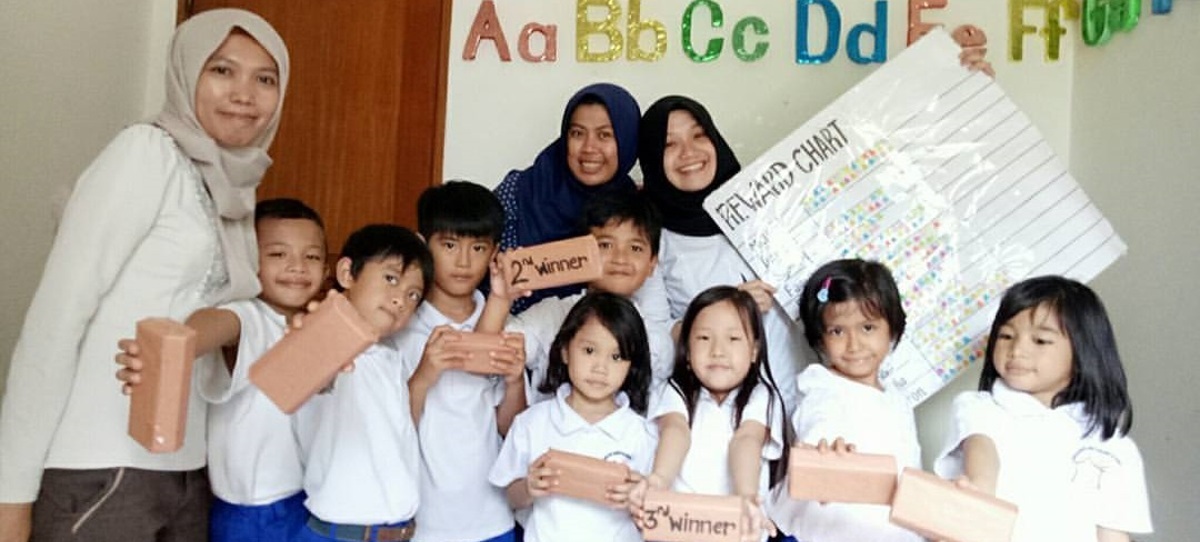 Aa Bb Cc Dd Ee Ff Gg
REWARD CHART
2nd Winner
3rd Winner